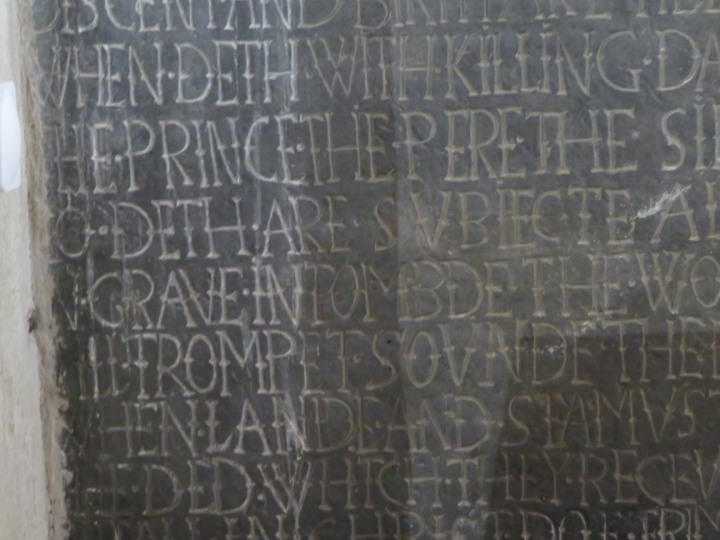 DISCENT AND BIRTH ARE
WHEN·DETH·WITH·KILLING·DA
THE·PRINCE·THE·PERE·THE·SI
TO·DETH·ARE·SVBIECTE·A
IN·GRAVE·INTOMBDE·THE·WO
TILL·TROMPET·SOVNDE·THE
WHEN·LANDE·AND·STAMVS
THE·DED·WHICH·THEY·RECEV
CHRIST DOE